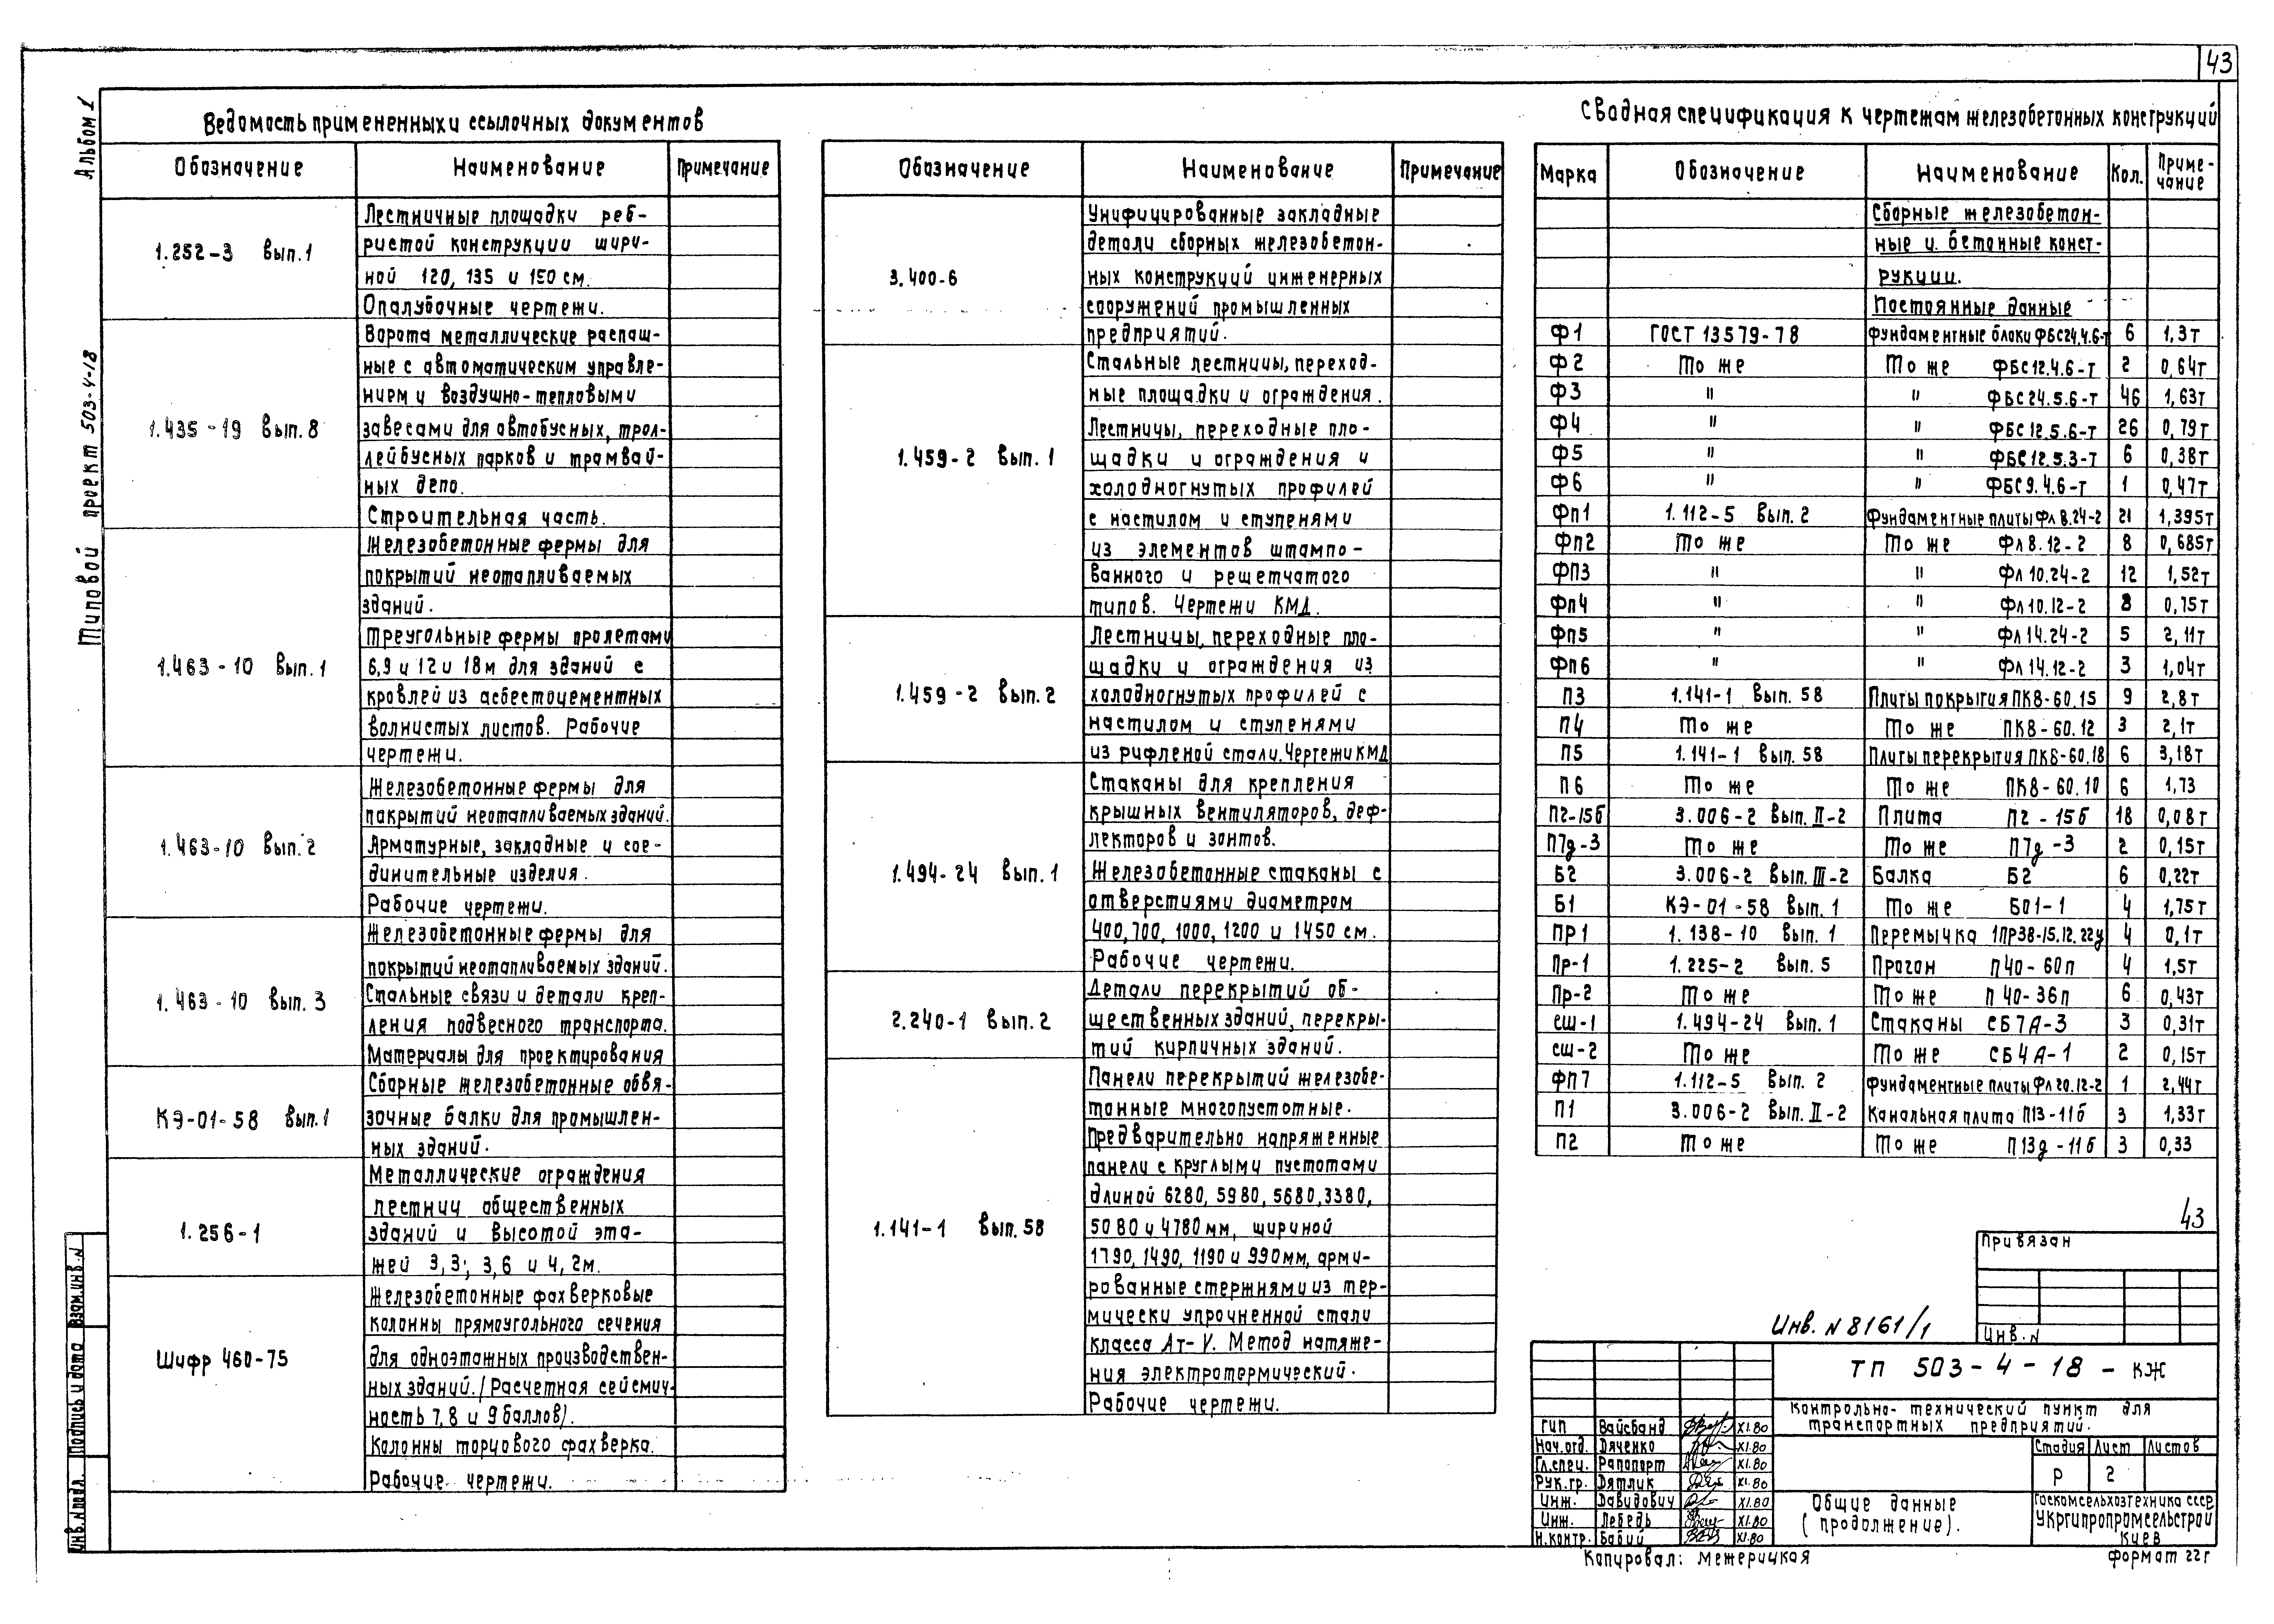 43
Альбом I
Типовой проект 503-4-18
Ведомость примененных и ссылочных документов
Обозначение Наименование Примечание
1.252-3 Вып.1
Лестничные площадки реб-
ристой конструкции шири-
ной 120, 135 и 150 см.
Опалубочные чертежи.
1.435-19 Вып.8
Ворота металлические распаш-
ные с автоматическим управле-
нием и воздушно-тепловыми
завесами для автобусных, трол-
лейбусных парков и трамвай-
ных депо.
Строительная часть.
1.463-10 Вып.1
Железобетонные фермы для
покрытий неотапливаемых
зданий.
Треугольные фермы пролетами
6,9 и 12 и 18м для зданий с
кровлей из асбестоцементных
волнистых листов. Рабочие
чертежи.
1.463-10 Вып.2
Железобетонные фермы для
покрытий неотапливаемых зданий.
Арматурные, закладные и сое-
динительные изделия.
Рабочие чертежи.
1.463-10 Вып.3
Железобетонные фермы для
покрытий неотапливаемых зданий.
Стальные связи и детали креп-
ления подвесного транспорта.
Материалы для проектирования
КЭ-01-58 Вып.1
Сборные железобетонные обвя-
зочные балки для промышлен-
ных зданий.
1.256-1
Металлические ограждения
лестниц общественных
зданий и высотой эта-
жей 3,3; 3,6 и 4,2м.
Шифр 460-75
Железобетонные фахверковые
колонны прямоугольного сечения
для одноэтажных производствен-
ных зданий. /Расчетная сейсмич-
ность 7,8 и 9 баллов).
Колонны торцового фахверка.
Рабочие чертежи.
Обозначение Наименование Примечание
3.400-6
Унифицированные закладные
детали сборных железобетон-
ных конструкций инженерных
сооружений промышленных
предприятий.
1.459-2 Вып.1
Стальные лестницы, переход-
ные площадки и ограждения.
Лестницы, переходные пло-
щадки и ограждения и
холодногнутых профилей
с настилом и ступенями
из элементов штампо-
ванного и решетчатого
типов. Чертежи КМД.
1.459-2 Вып.2
Лестницы, переходные пло-
щадки и ограждения из
холодногнутых профилей с
настилом и ступенями
из рифленой стали. Чертежи КМД
1.494-24 Вып.1
Стаканы для крепления
крышных вентиляторов, деф-
лекторов и зонтов.
Железобетонные стаканы с
отверстиями диаметром
400, 700, 1000, 1200 и 1450 см.
Рабочие чертежи.
2.240-1 Вып.2
Детали перекрытий об-
щественных зданий, перекры-
тий кирпичных зданий.
1.141-1 Вып.58
Панели перекрытий железобе-
тонные многопустотные.
Предварительно напряженные
панели с круглыми пустотами
длиной 6280, 5980, 5680, 3380,
5080 и 4780 мм, шириной
1790, 1490, 1190 и 990мм, арми-
рованные стержнями из тер-
мически упрочненной стали
класса Ат-V. Метод натяже-
ния электротермический.
Рабочие чертежи.
Сводная спецификация к чертежам железобетонных конструкций
Марка Обозначение Наименование Кол. Приме-
чание
Сборные железобетон-
ные и бетонные конст-
рукции.
Постоянные данные
Ф1 ГОСТ 13579-78 Фундаментные блоки ФБС24.4.6-т 6 1,3т
Ф2 То же То же ФБС12.4.6-т 2 0,64т
Ф3 " " ФБС24.5.6-т 46 1,63т
Ф4 " " ФБС12.5.6-т 26 0,79т
Ф5 " " ФБС12.5.3-т 6 0,38т
Ф6 " " ФБС9.4.6-т 1 0,47т
Фп1 1.112-5 Вып.2 Фундаментные плиты Фл 8.24-2 21 1,395т
Фп2 То же То же Фл8.12-2 8 0,685т
ФП3 " " Фл10.24-2 12 1,52т
Фп4 " " Фл10.12-2 8 0,75т
Фп5 " " Фл14.24-2 5 2,11т
Фп6 " " Фл14.12-2 3 1,04т
П3 1.141-1 Вып.58 Плиты покрытия ПК8-60.15 9 2,8т
П4 То же То же ПК8-60.12 3 2,1т
П5 1.141-1 Вып.58 Плиты перекрытия ПК8-60.18 6 3,18т
П6 То же То же ПК8-60.10 6 1,73
П2-15б 3.006-2 Вып.II-2 Плита П2-15б 18 0,08т
П7д-3 То же То же П7д-3 2 0,15т
Б2 3.006-2 Вып.III-2 Балка Б2 6 0,22т
Б1 КЭ-01-58 Вып.1 То же Б01-1 4 1,75т
ПР1 1.138-10 Вып.1 Перемычка 1ПР38-15.12.22у 4 0,1т
Пр-1 1.225-2 Вып.5 Прогон П40-60п 4 1,5т
Пр-2 То же То же П40-36п 6 0,43т
СШ-1 1.494-24 Вып.1 Стаканы СБ7А-3 3 0,31т
СШ-2 То же То же СБ4А-1 2 0,15т
ФП7 1.112-5 Вып.2 Фундаментные плиты Фл20.12-2 1 2,44т
П1 3.006-2 Вып.II-2 Канальная плита П13-11б 3 1,33т
П2 То же То же П13д-11б 3 0,33
43
Привязан
Инв.N
Инв. N 8161/1
ТП 503-4-18-КЖ
Контрольно-технический пункт для
транспортных предприятий.
Стадия Лист Листов
Р 2
Общие данные
(продолжение).
Госкомсельхозтехника СССР
Укргипропромсельстрой
Киев
ГИП Вайсбанд XI.80
Нач.отд. Дяченко XI.80
Гл.спец. Рапопорт XI.80
Рук.гр. Дятлик XI.80
Инж. Давидович XI.80
Инж. Лебедь XI.80
Н.контр. Бабий XI.80
Копировал: Межерицкая
Формат 22г
Взам.инв.N
Подпись и дата
Инв.N подл.